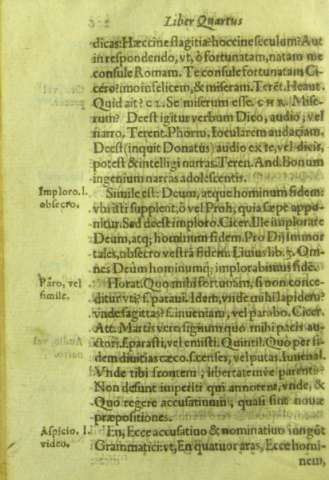 Liber Quartus
dicas: Hæccine flagitia? hoccine seculum? Aut
in respondendo, vt, ô fortunatam, natam me
consule Romam. Te consule fortunatam Ci-
cero? imo infelicem, & miseram. Terēt. Heaut.
Quid ait? CL. Se miserum esse. CHR. Mise-
rum? Deest igitur verbum Dico, audio, vel
narro. Terent. Phorm. Iocularem audaciam.
Deest (inquit Donatus) audio ex te, vel dicis,
potest & intelligi narras. Teren. And. Bonum
ingenium narras adolescentis.
Imploro. l. Simile est: Deum, atque hominum fidem:
obsecro. vbi isti supplent, ô vel Proh, quia sæpe appo-
nitur. Sed deest imploro. Cicer. Ille implorate
Deum, atq; hominum fidem. Pro Dij immor
tales, obsecro vestrā fidem. Liuius lib. 3. Om-
nes Deum hominumq; implorabimus fidē.
Páro, vel Horat. Quo mihi fortunam, si non conce-
simile. ditur vti? s. paraui. Idem, vnde mihi lapidem?
vnde sagittas? s. inueniam, vel parabo. Cicer.
Att. Martis vero signum quo mihi pacis au-
ctori. s. parasti, vel emisti. Quintil. Quo per fi-
dem diuitias cæco. s. censes, vel putas. Iuuenal.
Vnde tibi frontem, libertatemve parentis?
Non desunt imperiti qui annotent, vnde, &
Quo regere accusatiuum, quasi sint nouæ
præpositiones.
Aspicio. l. En, Ecce accusatiuo & nominatiuo iungūt
video. Grammatici: vt, En quatuor aras, Ecce homi-
nem,